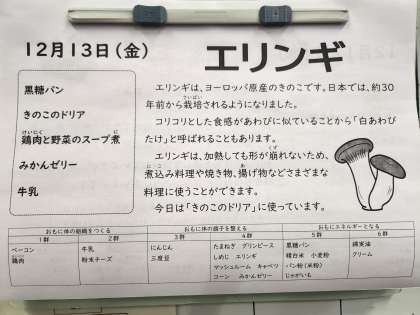 12月13日(金)
エリンギ
黒糖パン
きのこのドリア
けいにく
鶏肉と野菜のスープ煮
みかんゼリー
牛乳
エリンギは、ヨーロッパ原産のきのこです。日本では、約30
さいばい
年前から栽培されるようになりました。
コリコリとした食感があわびに似ていることから「白あわび
たけ」と呼ばれることもあります。
くず
エリンギは、加熱しても形が崩れないため、
にこ
あ
煮込み料理や焼き物、揚げ物などさまざまな
料理に使うことができます。
今日は「きのこのドリア」に使っています。
おもに体の組織をつくる
おもに体の調子を整える
おもにエネルギーとなる
1群
2群
3群
4群
5群
6群
ベーコン
鶏肉
牛乳
粉末チーズ
にんじん
三度豆
たまねぎ グリンピース
しめじ エリンギ
マッシュルーム キャベツ
コーン みかんゼリー
黒糖パン
精白米 小麦粉
パン粉(米粉)
じゃがいも
綿実油
クリーム